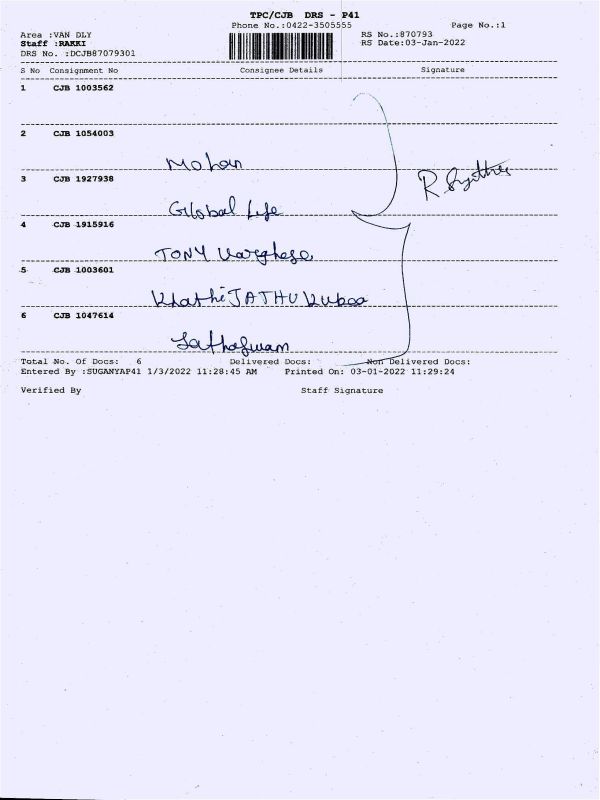 TPC/CJB DRS - P41
Phone No.:0422-3505555 Page No.:1
Area :VAN DLY RS No.:870793
Staff :RAKKI RS Date:03-Jan-2022
DRS No. :DCJB87079301
S No Consignment No Consignee Details Signature
1 CJB 1003562
2 CJB 1054003
Mohan
3 CJB 1927938
Global Life
4 CJB 1915916
TONY Varghese
5 CJB 1003601
6 CJB 1047614
Total No. Of Docs: 6 Delivered Docs: Non Delivered Docs:
Entered By :SUGANYAP41 1/3/2022 11:28:45 AM Printed On: 03-01-2022 11:29:24
Verified By Staff Signature